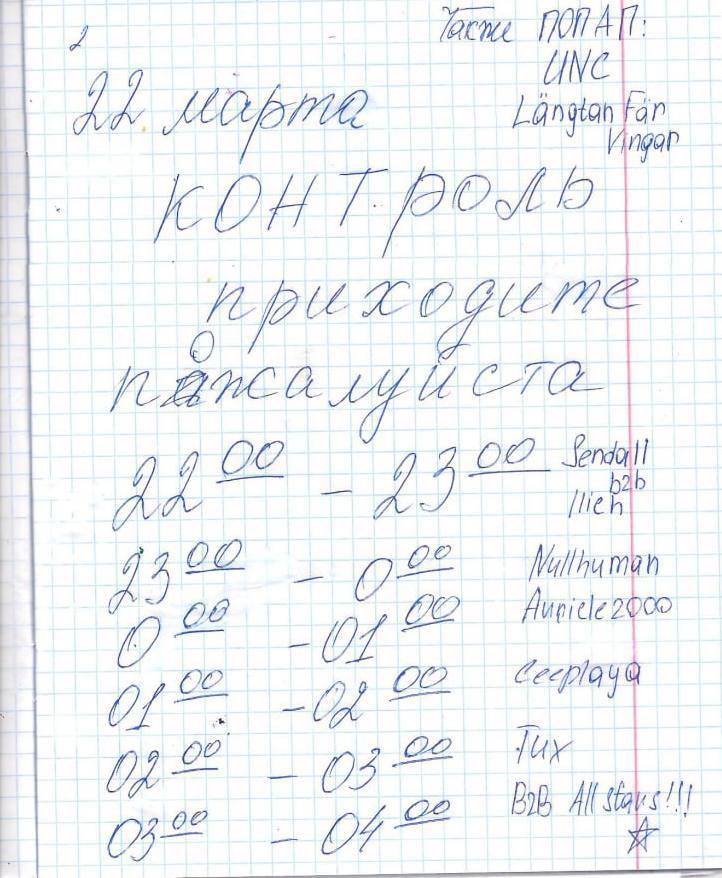 2
Также ПОПАП:
UNC
Längtan Fär
Vingar
22 марта
КОНТРОЛЬ
приходите
пожалуйста
22 00 - 23 00 Sendall
b2b
Ilich
23 00 - 0 00 Nullhuman
0 00 - 01 00
01 00 - 02 00 Ceeplaya
02 00 - 03 00 Tux
03 00 - 04 00 B2B Allstars!!!